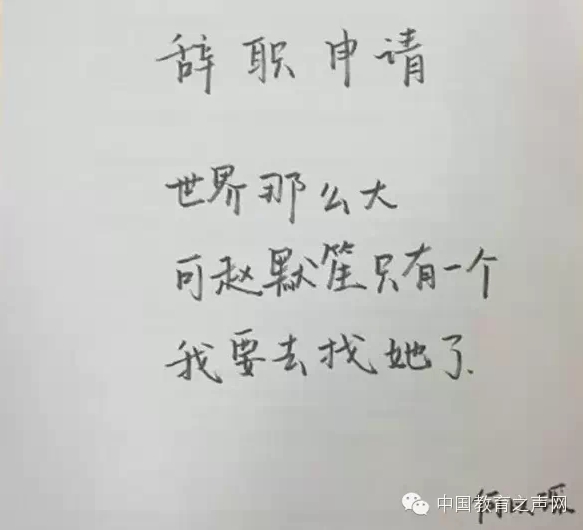 辞职申请
世界那么大
可赵默笙只有一个
我要去找她了.
何以琛
中国教育之声网